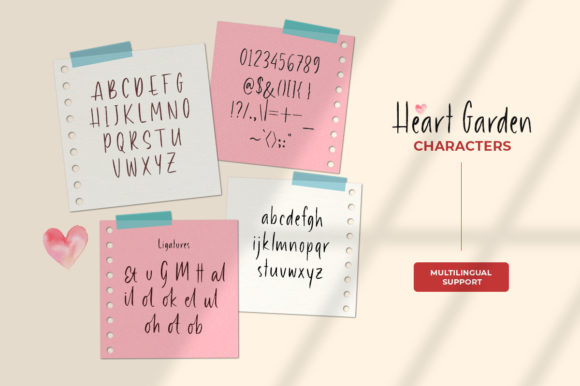 ABCDEFG
HIJKLMNO
PQRSTU
VWXYZ
0123456789
@$&()[]{}
!?/.,\|=+-_
~`<>:;"
Heart Garden
CHARACTERS
Ligatures
Et u G M H al
il ol ok el ul
oh ot ob
abcdefgh
ijklmnopqr
stuvwxyz
MULTILINGUAL
SUPPORT